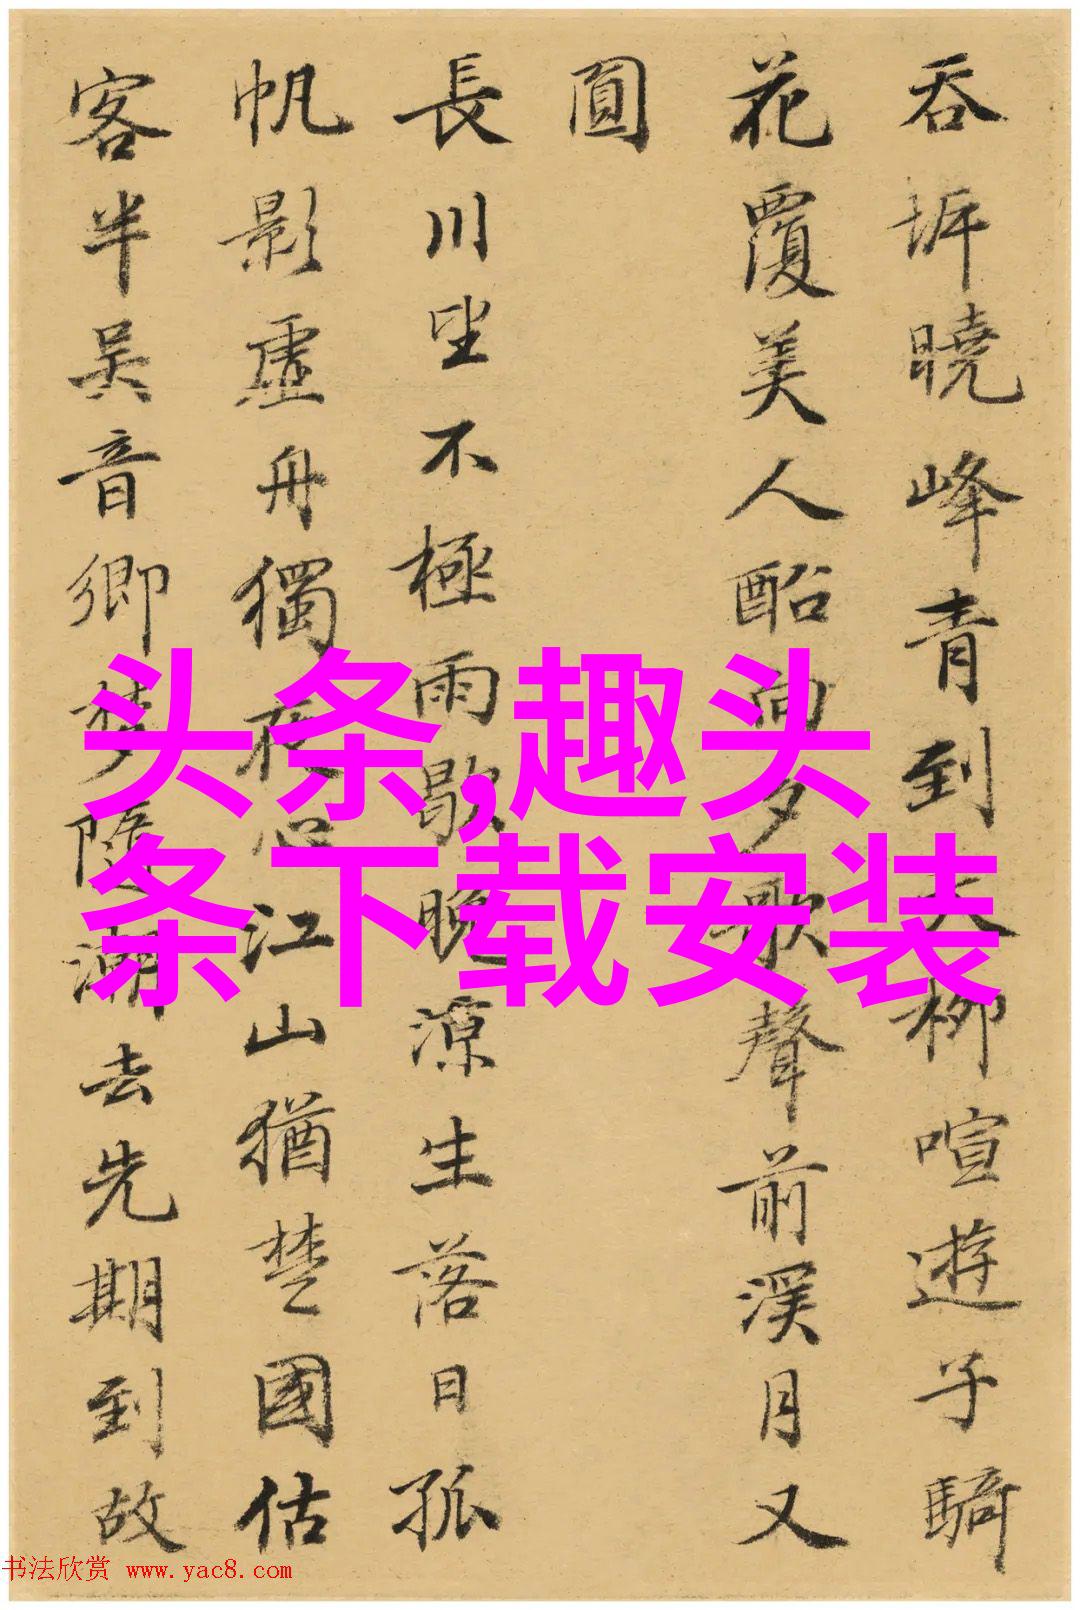 吞坼曉峰青到天柳喧遊子騎
花覆美人酩向夕歌聲前溪月又
圓
長川坐不極雨歇晚涼生落日孤
帆影虛舟獨夜心江山猶楚國估
客半吳音鄉夢隨潮去先期到故
头条,趣头
条下载安装
书法欣赏 www.yac8.com